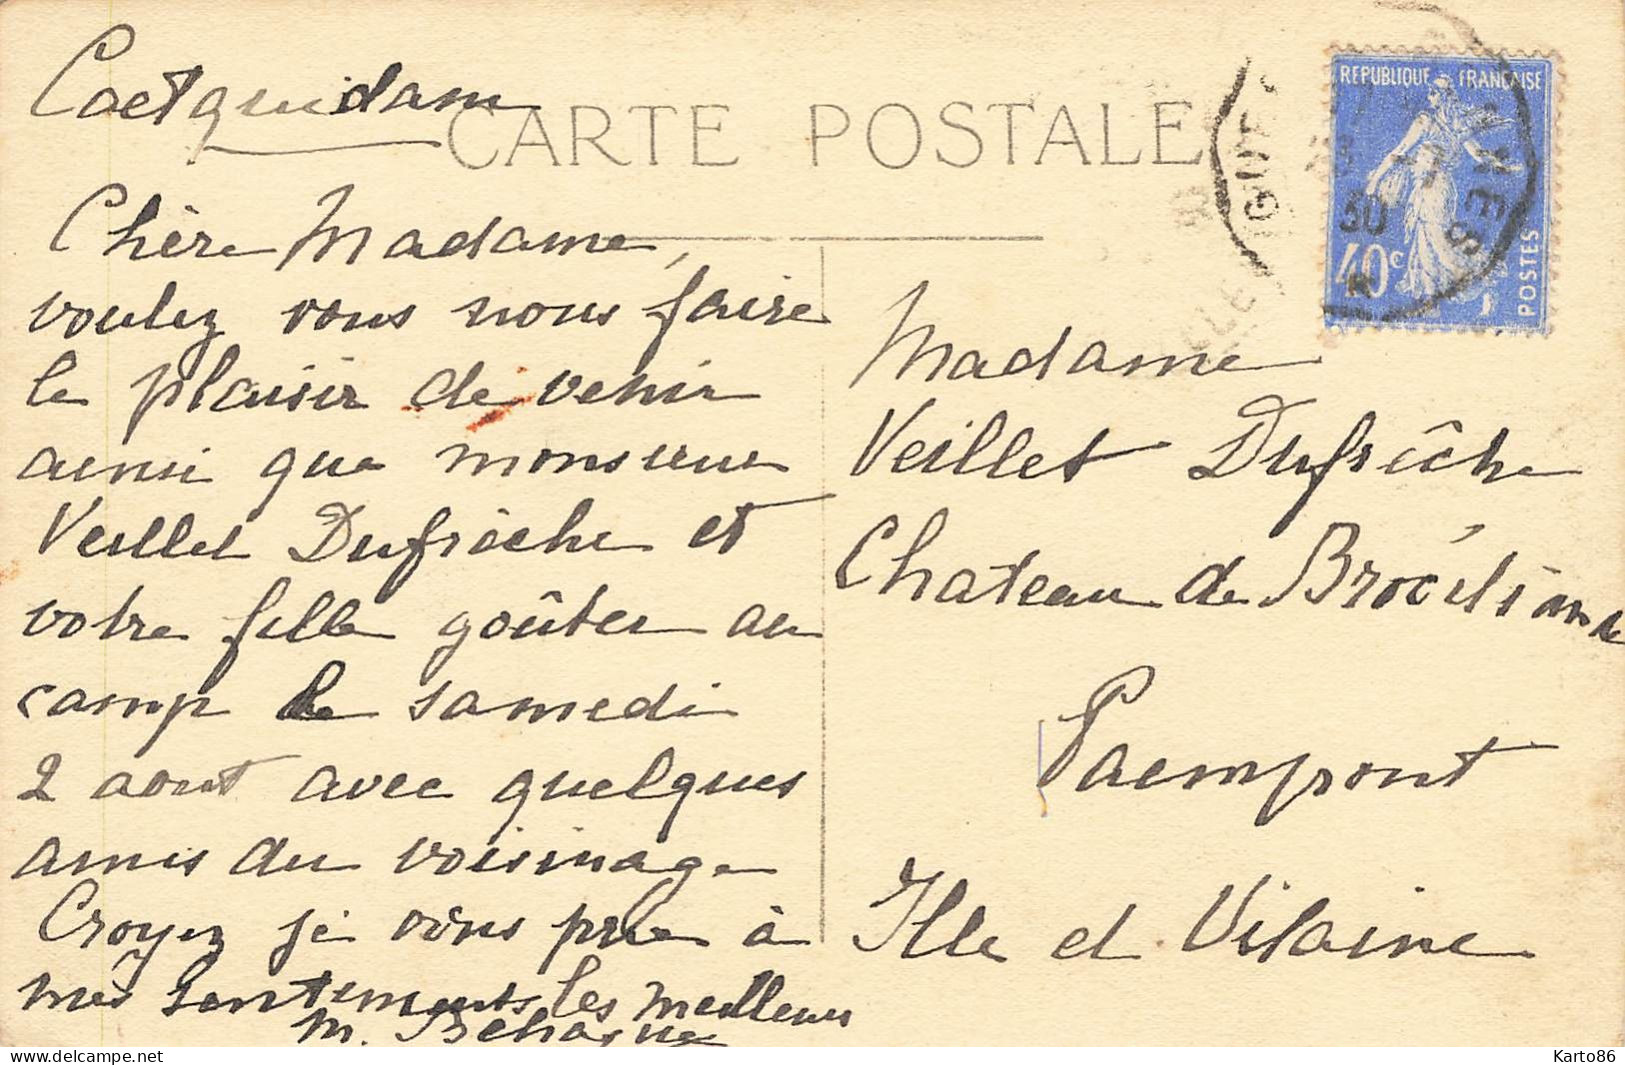 Coetquidam
CARTE POSTALE
REPUBLIQUE FRANÇAISE
30
40c
POSTES
Chère Madame,
voulez vous nous faire
le plaisir de venir
ainsi que monsieur
Veillet Dufrêche et
votre fille goûter au
camp le samedi
2 aout avec quelques
amis du voisinage
Croyez je vous prie à
mes sentements les meilleurs
M. Behague
Madame
Veillet Dufrêche
Chateau de Brocéliande
Paempont
Ille et Vilaine
delcampe.net
Karto86